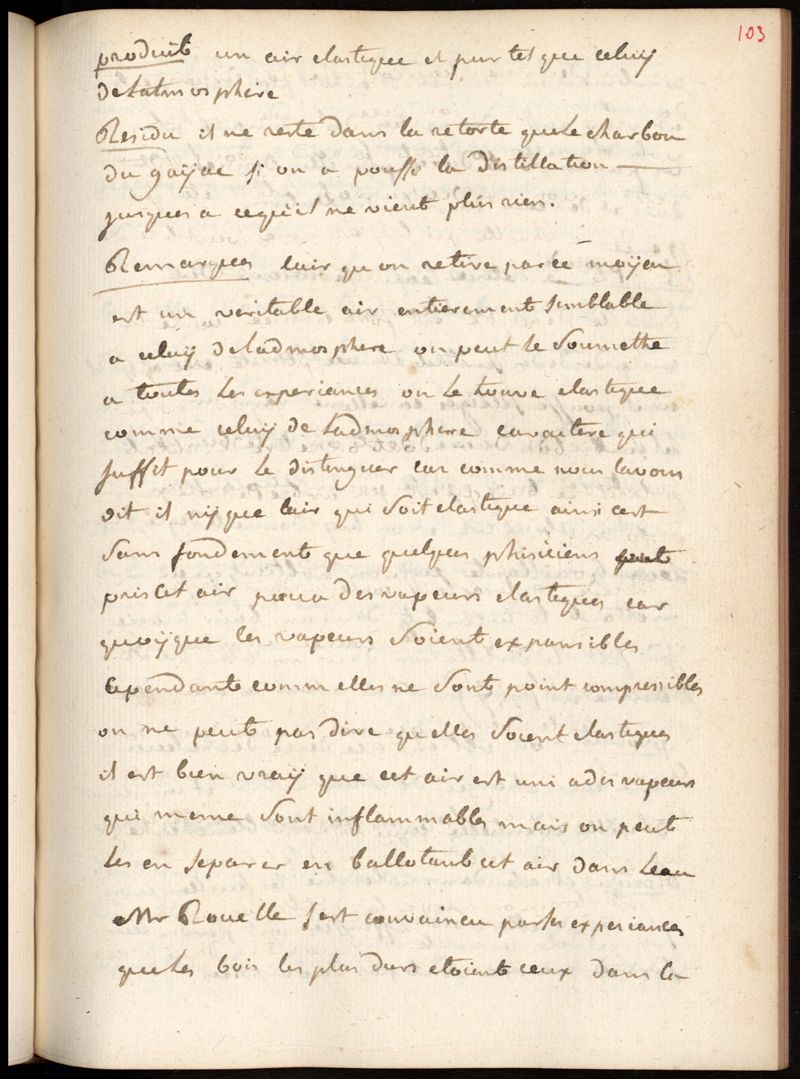 103
produit un air elastique et pur tel que celuy
de latmosphère
Residu il ne reste dans la retorte que le charbon
du gaÿac si on a poussé la distillation
jusques a cequil ne vient plus rien.
Remarques lair qu on retire par ce moÿen
est un veritable air entierement semblable
a celuÿ de ladmosphere on peut le soumettre
a toutes les experiances on le trouve elastique
comme celuÿ de ladmosphere caractere qui
suffit pour le distinguer car comme nous lavons
dit il nÿ que lair qui soit elastique ainsi cest
sans fondement que quelques phisiciens
pris cet air pour des vapeurs elastiques car
quoÿque les vapeurs soient expansibles
cependant comm elles ne sont point compressibles
on ne peut pas dire quelles soient elastiques
il est bien vraÿ que cet air est uni a des vapeurs
qui meme sont inflammables mais on peut
les en separer en ballotant cet air dans leau
Mr Rouelle sest convaincu par ses experiances
que les bois les plus durs etoient ceux dans la